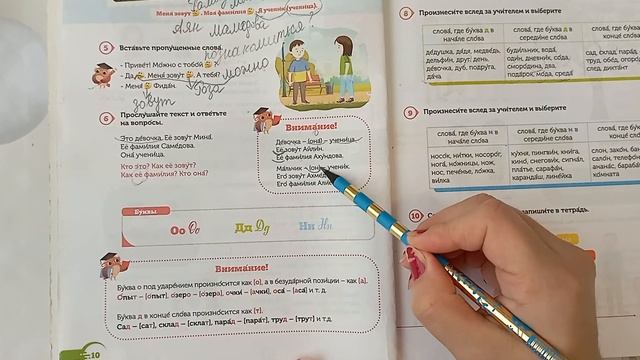 Меня́ зову́т
Моя́ фами́лия
Я учени́к (учени́ца).
Аян Мамедова
5 Вста́вьте пропу́щенные слова́.
познакомимся?
- Приве́т! Мо́жно с тобо́й
- Да, Меня́ зову́т А тебя́?
- Меня́ Фида́н.
Да можно
зовут
6 Прослу́шайте текст и отве́тьте
на вопро́сы.
Это де́вочка. Её зову́т Мина́.
Её фами́лия Саме́дова.
Она́ учени́ца.
Кто э́то? Как её зову́т?
Как её фами́лия? Кто она́?
Внима́ние!
Де́вочка – (она́) – учени́ца.
Её зову́т Айли́н.
Её фами́лия Аху́ндова.
Ма́льчик – (он) – учени́к.
Его́ зову́т Ахме́д
Его́ фами́лия
Бу́квы
Оо Оо Дд Дд Нн Нн
Внима́ние!
Бу́ква о под ударе́нием произно́сится как [о], а в безуда́рной пози́ции – как [а].
О́пыт – [о́пыт], о́зеро – [о́зера], очки́ – [ачки́], оса́ – [аса́] и т. д.
Бу́ква д в конце́ сло́ва произно́сится как [т].
Сад – [сат], склад – [склат], пара́д – [пара́т], труд – [трут] и т.д.
10
8 Произнеси́те вслед за учи́телем и вы́берите
слова́, где бу́ква д в
нача́ле сло́ва
слова́, где бу́ква д в
середи́не сло́ва
слова́, где бу
конце́ сло
де́душка, дя́дя, медве́дь,
дельфи́н, друг, день,
де́вочка, дуб, подру́га,
да́ча
буди́льник, вода́,
оди́н, дневни́к, оде́жда,
сморо́дина, два,
пода́рок, мо́да, среда́
сад, склад, пара́д
труд, обе́д, огоро́д
след, дикта́нт
9 Произнеси́те вслед за учи́телем и вы́берите
слова́, где бу́ква н в
нача́ле сло́ва
слова́, где бу́ква н в
середи́не сло́ва
слова́, где бу
конце́ сло
носо́к, ни́тки, носоро́г,
нога́, но́жницы, нож,
нос, пече́нье, ло́жка,
ви́лка
ку́хня, пингви́н, кни́га,
кино́, снегови́к, сигна́л,
пла́тье, сарафа́н,
каранда́ш, лине́йка
слон, зако́н, ба
салю́т, телефо́н
фонта́н, бато́н
ко́мната
10
запиши́те в тетра́дь.